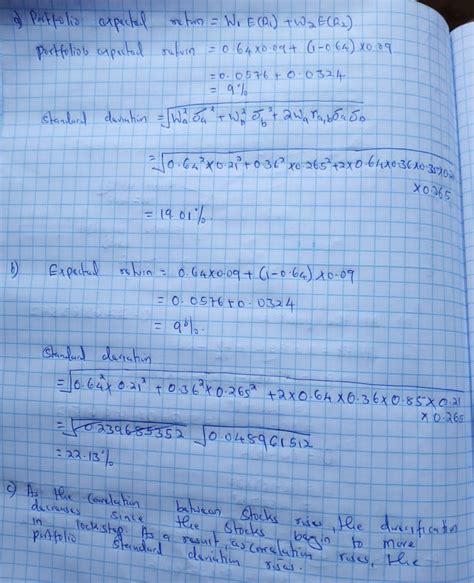 a) Portfolio expected return = W₁ E(R₁) + W₂ E(R₂)
Portfolios expected return = 0.64x0.09 + (1-0.64) x0.09
= 0.0576 + 0.0324
= 9%
Standard deviation = √Wa² σa² + Wb² σb² + 2Wa ra,b σa σb
= √0.64² x 0.21² + 0.36² x 0.265² + 2x 0.64 x0.36 x0.35x0.21
x0.265
= 19.01%.
b) Expected return = 0.64x0.09 + (1-0.64) x0.09
= 0.0576 + 0.0324
= 9%.
Standard deviation
= √0.64² x 0.21² + 0.36² x 0.265² + 2 x 0.64 x 0.36 x 0.85 x 0.21
x 0.265
= √0.239685352 √0.048961512
= 22.13%
c) As the correlation between stocks rises, the diversification
decreases since the stocks begin to move
in lockstep. As a result, as correlation rises, the
portfolio standard deviation rises.